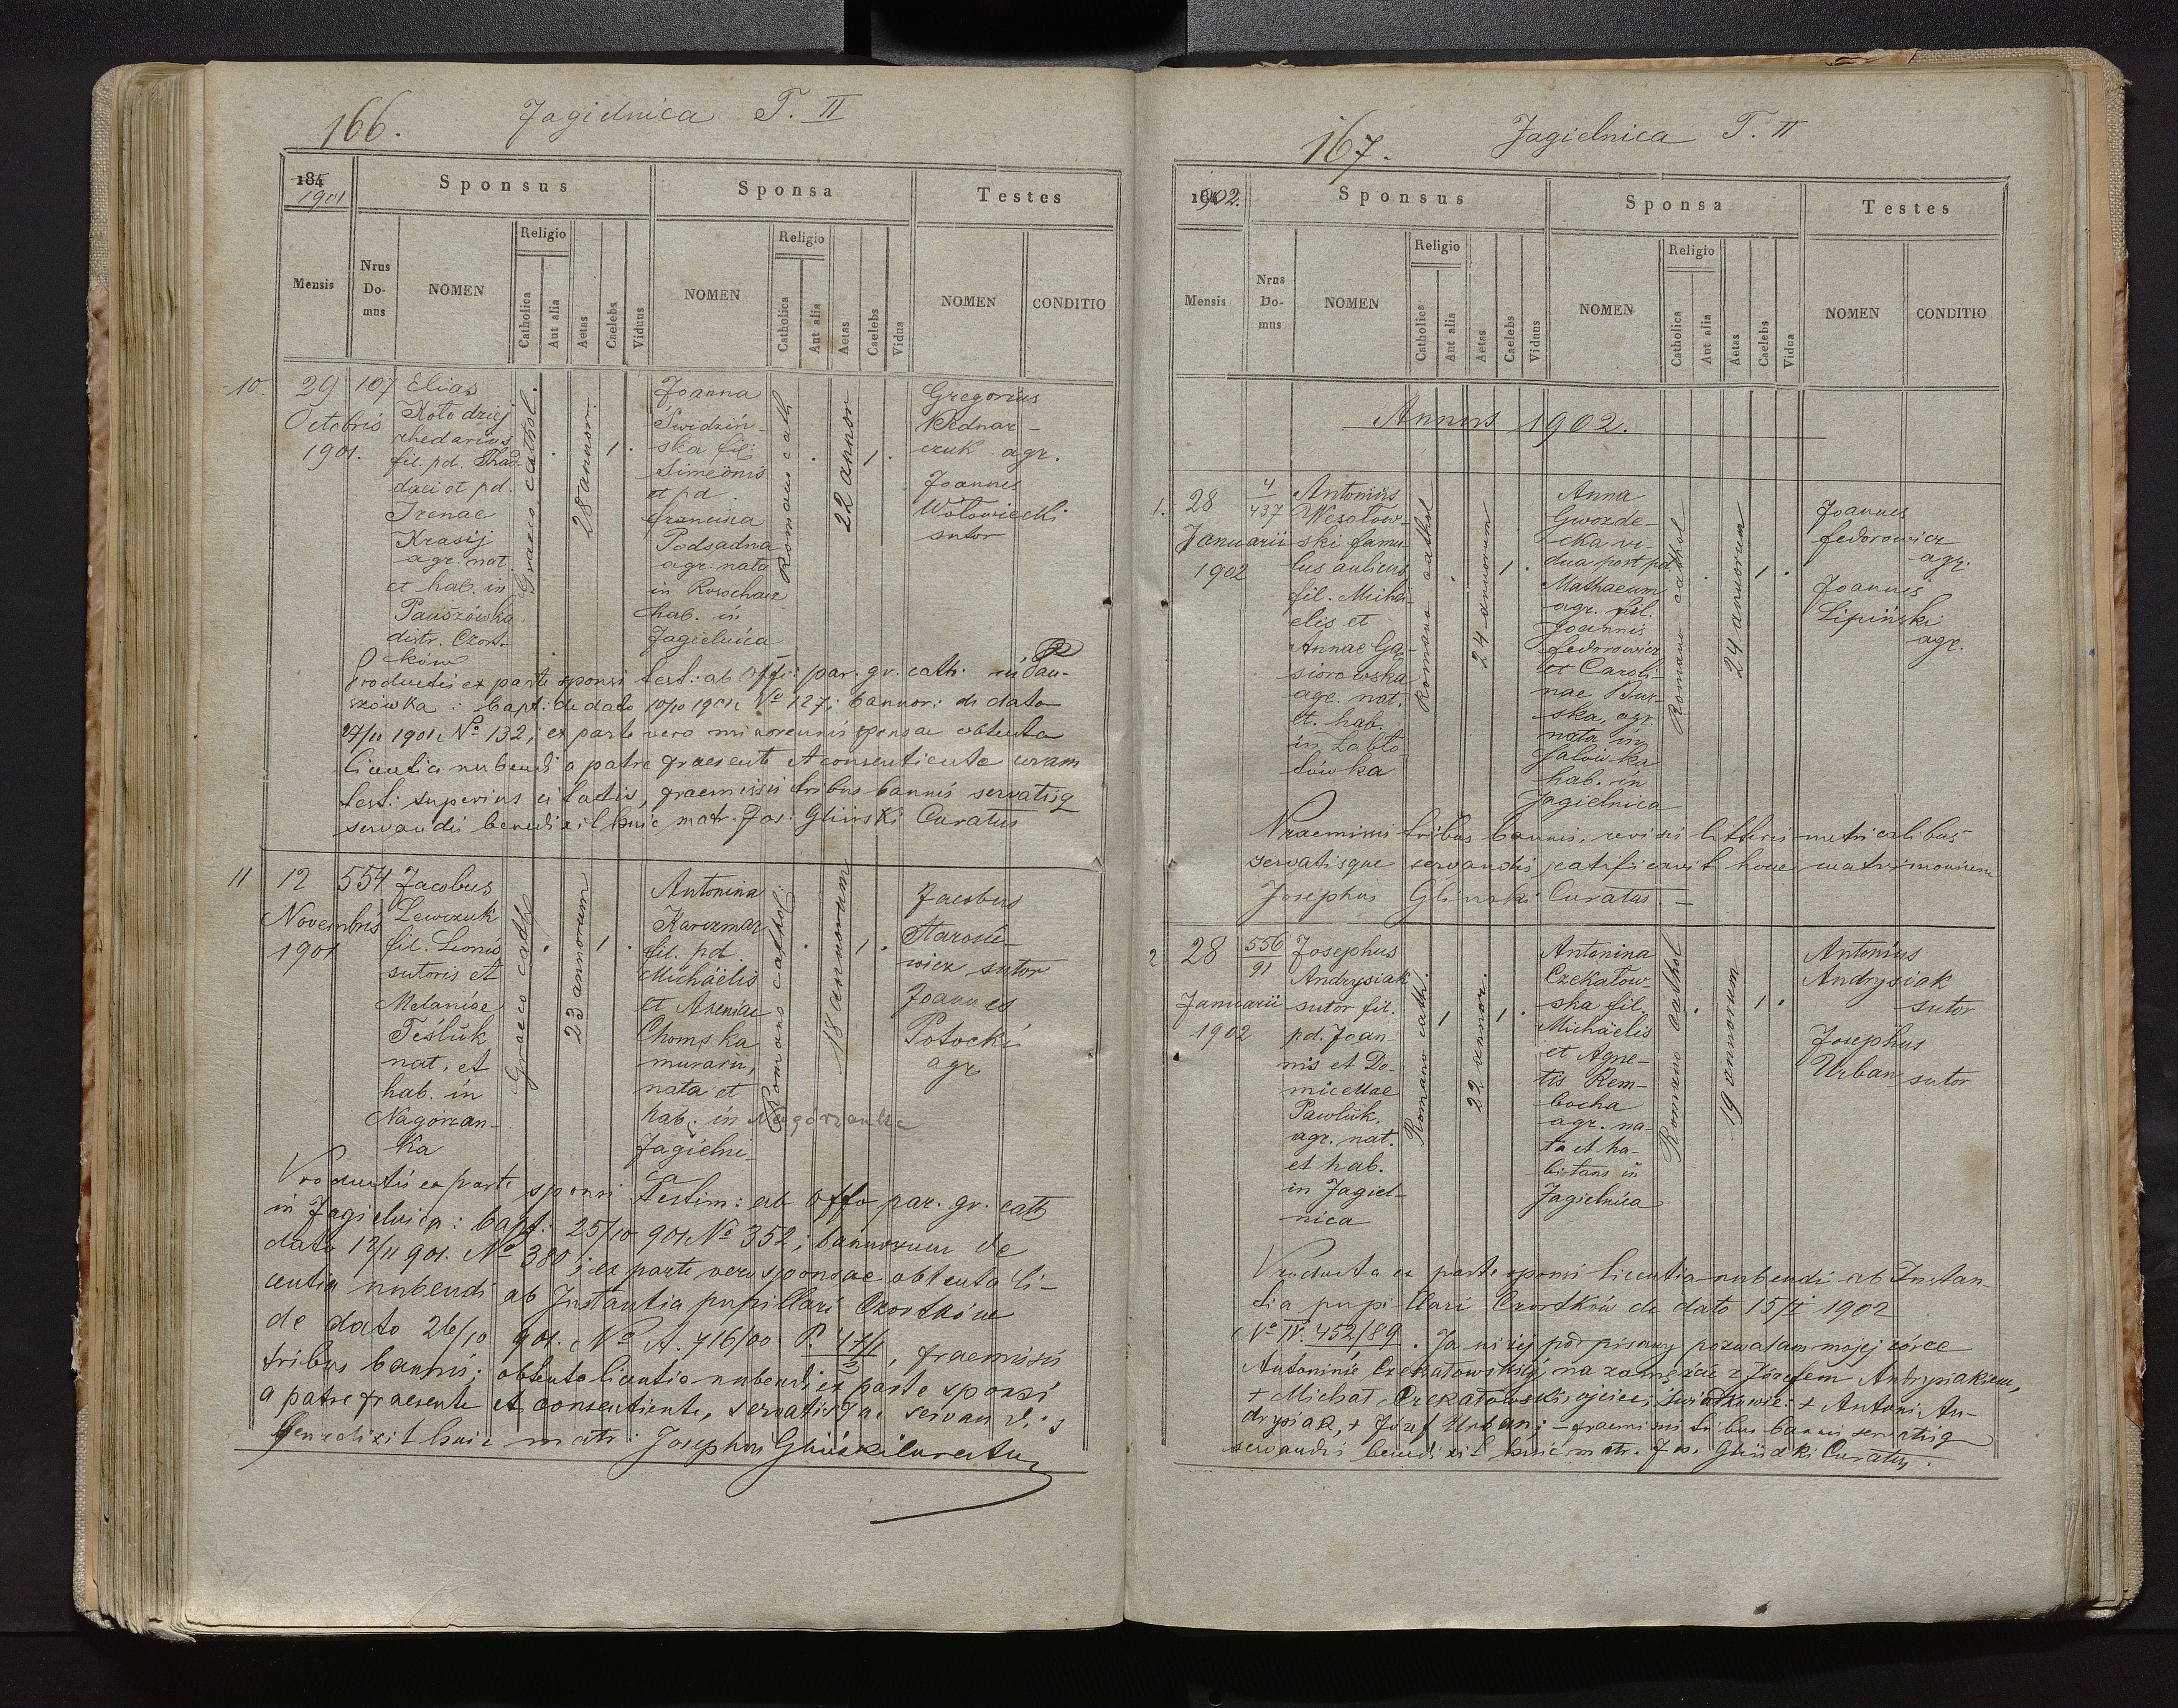 166.
Jagielnica T. II
184
1901
Sponsus
Sponsa
Testes
Mensis
Nrus Do-mus
NOMEN
Religio
Catholica
Aut alia
Aetas
Caelebs
Viduus
NOMEN
Religio
Catholica
Aut alia
Aetas
Caelebs
Vidua
NOMEN
CONDITIO
10.
29
Octobris
1901.
107
Elias
Kołodziej
rhedarius
fil. pd. Thad
daei et pd.
Irenae
Krasij
agr. nat.
et hab. in
Pauszówka
distr. Czort-
ków
Graeco cathol.
28 annor.
1.
Joanna
Świdziń-
ska fil.
Simeonis
et pd.
Francisca
Podsadna
agr. nata
in Rosochacz
hab. in
Jagielnica
Romano cath
22 annor
1.
Gregorius
Bednar-
czuk agr.
Joannes
Wołowiecki
sutor
Productis ex parte sponsi test: ab offi: par. gr. cath. in Pau-
szówka: bapt: de dato 10/10 1901 No 127; bannor: de dato
No 132; ex parte vero minorennis sponsae obtenta
licentia nubendi a patre praesente et consentiente coram
test: superius citatis, praemissis tribus bannis servatisq
servandis benedixit huic matr. Jos: Gliński Curatus
11
12
Novembris
1901
554
Jacobus
Lewczuk
fil. Leonis
sutoris et
Melaniae
Teśluk
nat. et
hab. in
Nagórzan-
ka
Graeco cath
23 annorum
1.
Antonina
Karczmar
fil. pd.
Michäelis
et Axeniae
Chomska
murarii,
nata et
hab. in Nagórzanka
Jagielni-
ca
Romano cathol.
18 annorum
1.
Jacobus
Starosie-
wicz sutor
Joannes
Potocki
agr
Productis ex parte sponsi Testim: ab offo par. gr. cath
in Jagielnica: bapt: 25/10 901 No 352; bannorum de
dato 12/11 901. No 380; ex parte vero sponsae obtenta li-
centia nubendi ab Instantia pupillari Czortków
de dato 26/10 901. No A. 716/00 P. , praemissis
tribus bannis; obtenta licentia nubendi ex parte sponsi
a patre praesente et consentiente, servatisque servandis
benedixit huic matr: Josephus Gliński Curatus
167.
Jagielnica T. II
1902.
Sponsus
Sponsa
Testes
Mensis
Nrus Do-mus
NOMEN
Religio
Catholica
Aut alia
Aetas
Caelebs
Viduus
NOMEN
Religio
Catholica
Aut alia
Aetas
Caelebs
Vidua
NOMEN
CONDITIO
Annus 1902.
1.
28
Januarii
1902
4
437
Antonius
Wesołow-
ski famu-
lus aulicus
fil. Micha-
elis et
Annae Gą-
siorowska
agr. nat.
et. hab.
in Zabło-
tówka
Romano cathol
24 annorum
1.
Anna
Gwozde-
cka vi-
dua post pd.
Mathaeum
agr. fil.
Joannis
Fedorowicz
et Caroli-
nae Bur-
ska, agr.
nata in
Salówka
hab. in
Jagielnica
Romano cathol
24 annorum
1.
Joannes
Fedorowicz
agr.
Joannes
Lipiński
agr.
Praemissis tribus bannis, revisis litteris metricalibus
servatisque servandis ratificavit hoce matrimonium
Josephus Gliński Curatus. —
2
28
Januarii
1902
556
91
Josephus
Andrysiak
sutor fil.
pd. Joan-
nis et Do-
micellae
Pawluk,
agr. nat.
et hab.
in Jagiel-
nica
Romano cath.
22 annor.
1.
Antonina
Czekałow-
ska fil.
Michäelis
et Agne-
tis Rem-
bocha
agr. na-
ta et ha-
bitans in
Jagielnica
Romano cathol
19 annorum
1.
Antonius
Andrysiak
sutor
Josephus
Urban sutor
Producta ex parte sponsi licentia nubendi ab Instan-
tia pupillari Czortków de dato 15/I 1902
No IV. 452/89. Ja niżej podpisany pozwalam mojej córce
Antoninie Czekałowskiej na zamęście z Józefem Andrysiakiem,
+ Michał Czekałowski, ojciec, świadkowie: + Antoni An-
drysiak, + Józef Urban; — praemissis tribus bannis servatisq
servandis benedixit huic matr. Jos. Gliński Curatus.